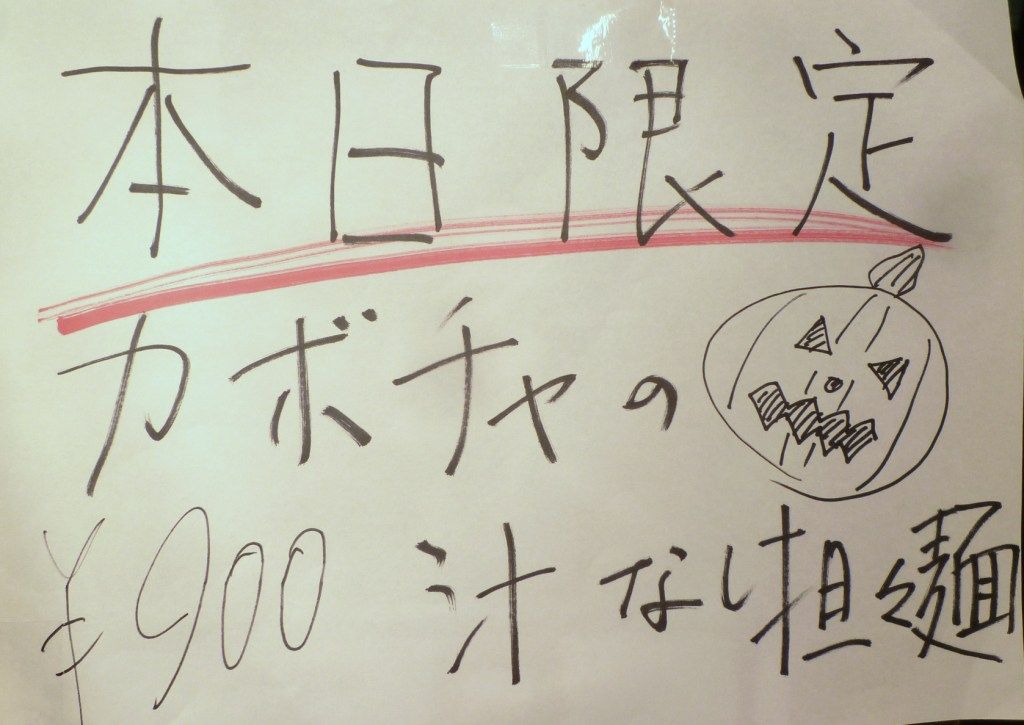 本日限定
カボチャの
¥900 汁なし担々麺